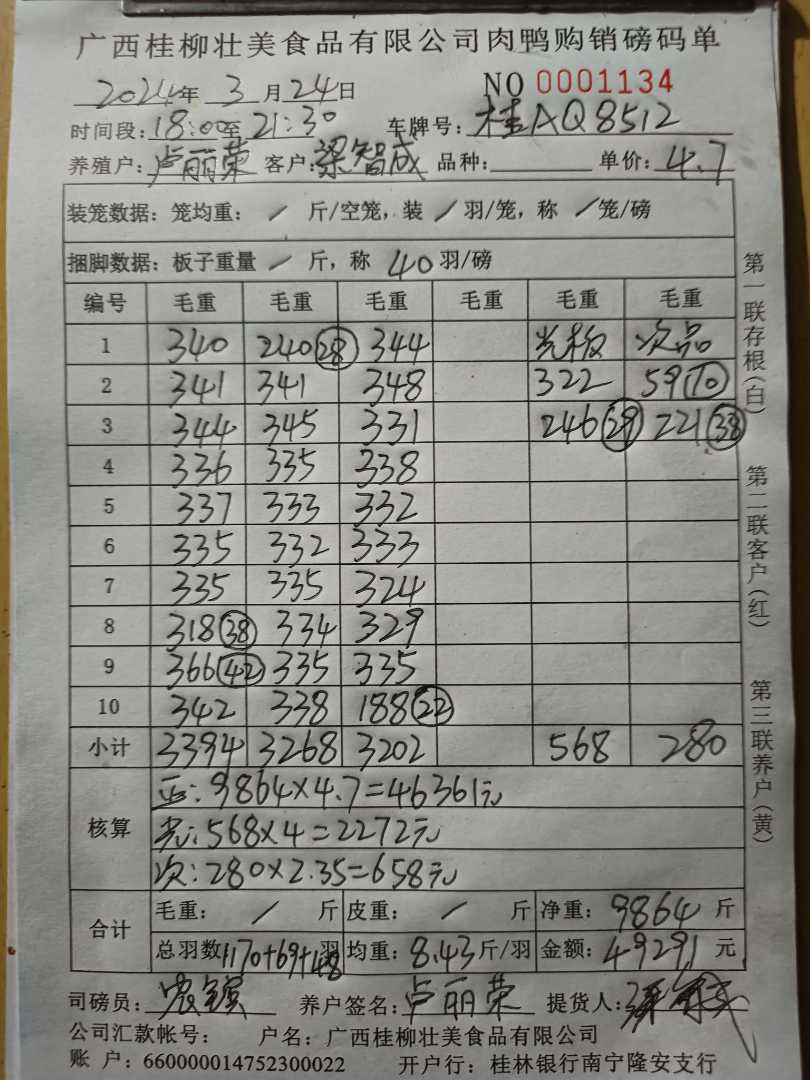 广西桂柳壮美食品有限公司肉鸭购销磅码单
2024年 3 月 24 日 NO 0001134
时间段: 18:00至 21:30 车牌号: 桂AQ8512
养殖户: 卢丽荣 客户: 梁智成 品种: 单价: 4.7
装笼数据: 笼均重: / 斤/空笼, 装 / 羽/笼, 称 / 笼/磅
捆脚数据: 板子重量 / 斤, 称 40 羽/磅
编号 毛重 毛重 毛重 毛重 毛重 毛重
1 340 240(28) 344 光板 次品
2 341 341 348 322 59(10)
3 344 345 331 246(29) 221(38)
4 336 335 338
5 337 333 332
6 335 332 333
7 335 335 324
8 318(38) 334 329
9 366(42) 335 335
10 342 338 188(22)
小计 3394 3268 3202 568 280
核算 正: 9864×4.7=46361元
光: 568×4=2272元
次: 280×2.35=658元
合计 毛重: / 斤 皮重: / 斤 净重: 9864 斤
总羽数 1170+69+48 羽 均重: 8.43 斤/羽 金额: 49291 元
司磅员: 养户签名: 卢丽荣 提货人:
公司汇款帐号: 户名: 广西桂柳壮美食品有限公司
账 户: 660000014752300022 开户行: 桂林银行南宁隆安支行
第一联存根(白)
第二联客户(红)
第三联养户(黄)